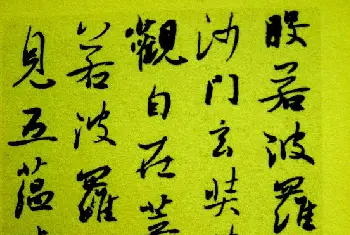 般若波羅
沙門玄奘
觀自在菩
若波羅
見五蘊